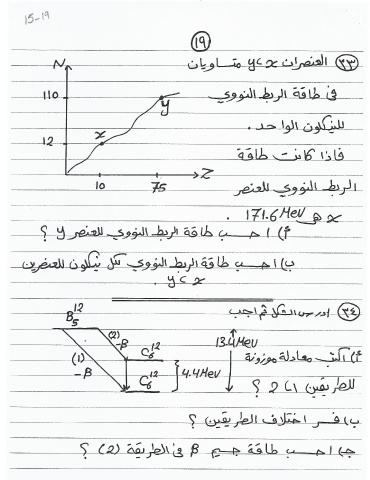 15-19
١٩
٣٣ العنصران x ، y متساويان
في طاقة الربط النووي
للنيكلون الواحد .
فاذا كانت طاقة
الربط النووي للعنصر
x هي 171.6 MeV .
N
110
12
x
y
10
75
Z
أ) احسب طاقة الربط النووي للعنصر y ؟
ب) احسب طاقة الربط النووي لكل نيكلون للعنصرين
x ، y .
٣٤ ادرس الشكل ثم اجب
B₅¹²
(2)
-β
(1)
-β
C₆¹²
C₆¹²
4.4 MeV
13.4 MeV
أ) اكتب معادلة موزونة
للطريقين 1 ، 2 ؟
ب) فسر اختلاف الطريقين ؟
جـ) احسب طاقة جسيم β في الطريقة (2) ؟